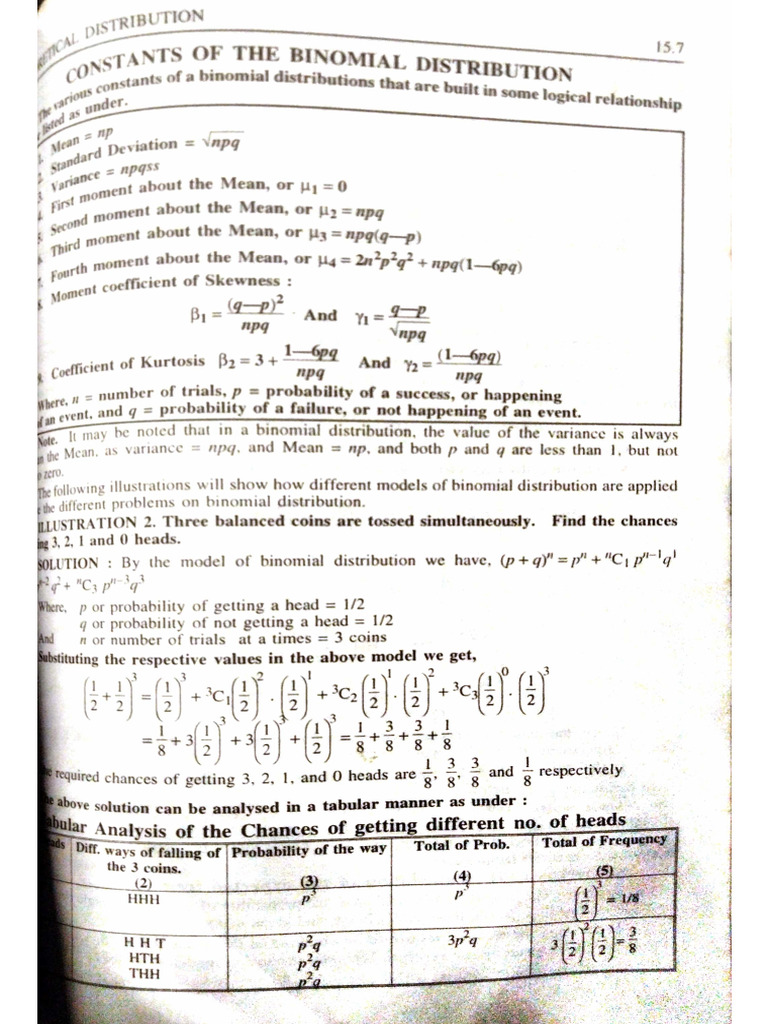 RETICAL DISTRIBUTION
15.7
CONSTANTS OF THE BINOMIAL DISTRIBUTION
The various constants of a binomial distributions that are built in some logical relationship
listed as under.
1. Mean = np
2. Standard Deviation = √npq
3. Variance = npqss
4. First moment about the Mean, or μ₁ = 0
5. Second moment about the Mean, or μ₂ = npq
6. Third moment about the Mean, or μ₃ = npq(q—p)
7. Fourth moment about the Mean, or μ₄ = 2n²p²q² + npq(1—6pq)
8. Moment coefficient of Skewness :
β₁ = (q—p)²/npq And γ₁ = q—p/√npq
9. Coefficient of Kurtosis β₂ = 3 + 1—6pq/npq And γ₂ = (1—6pq)/npq
Where, n = number of trials, p = probability of a success, or happening
of an event, and q = probability of a failure, or not happening of an event.
Note. It may be noted that in a binomial distribution, the value of the variance is always
the Mean, as variance = npq, and Mean = np, and both p and q are less than 1, but not
zero.
The following illustrations will show how different models of binomial distribution are applied
the different problems on binomial distribution.
ILLUSTRATION 2. Three balanced coins are tossed simultaneously. Find the chances
ing 3, 2, 1 and 0 heads.
SOLUTION : By the model of binomial distribution we have, (p + q)ⁿ = pⁿ + ⁿC₁ pⁿ⁻¹q¹
pⁿ⁻²q² + ⁿC₃ pⁿ⁻³q³
Where, p or probability of getting a head = 1/2
q or probability of not getting a head = 1/2
And n or number of trials at a times = 3 coins
Substituting the respective values in the above model we get,
(1/2 + 1/2)³ = (1/2)³ + ³C₁(1/2)² . (1/2)¹ + ³C₂(1/2)¹ . (1/2)² + ³C₃(1/2)⁰ . (1/2)³
= 1/8 + 3(1/2)³ + 3(1/2)³ + (1/2)³ = 1/8 + 3/8 + 3/8 + 1/8
required chances of getting 3, 2, 1, and 0 heads are 1/8, 3/8, 3/8 and 1/8 respectively
above solution can be analysed in a tabular manner as under :
Tabular Analysis of the Chances of getting different no. of heads
eads Diff. ways of falling of Probability of the way Total of Prob. Total of Frequency
the 3 coins.
(2) (3) (4) (5)
HHH p³ p³ (1/2)³ = 1/8
H H T p²q 3p²q 3(1/2)²(1/2) = 3/8
HTH p²q
THH p²q